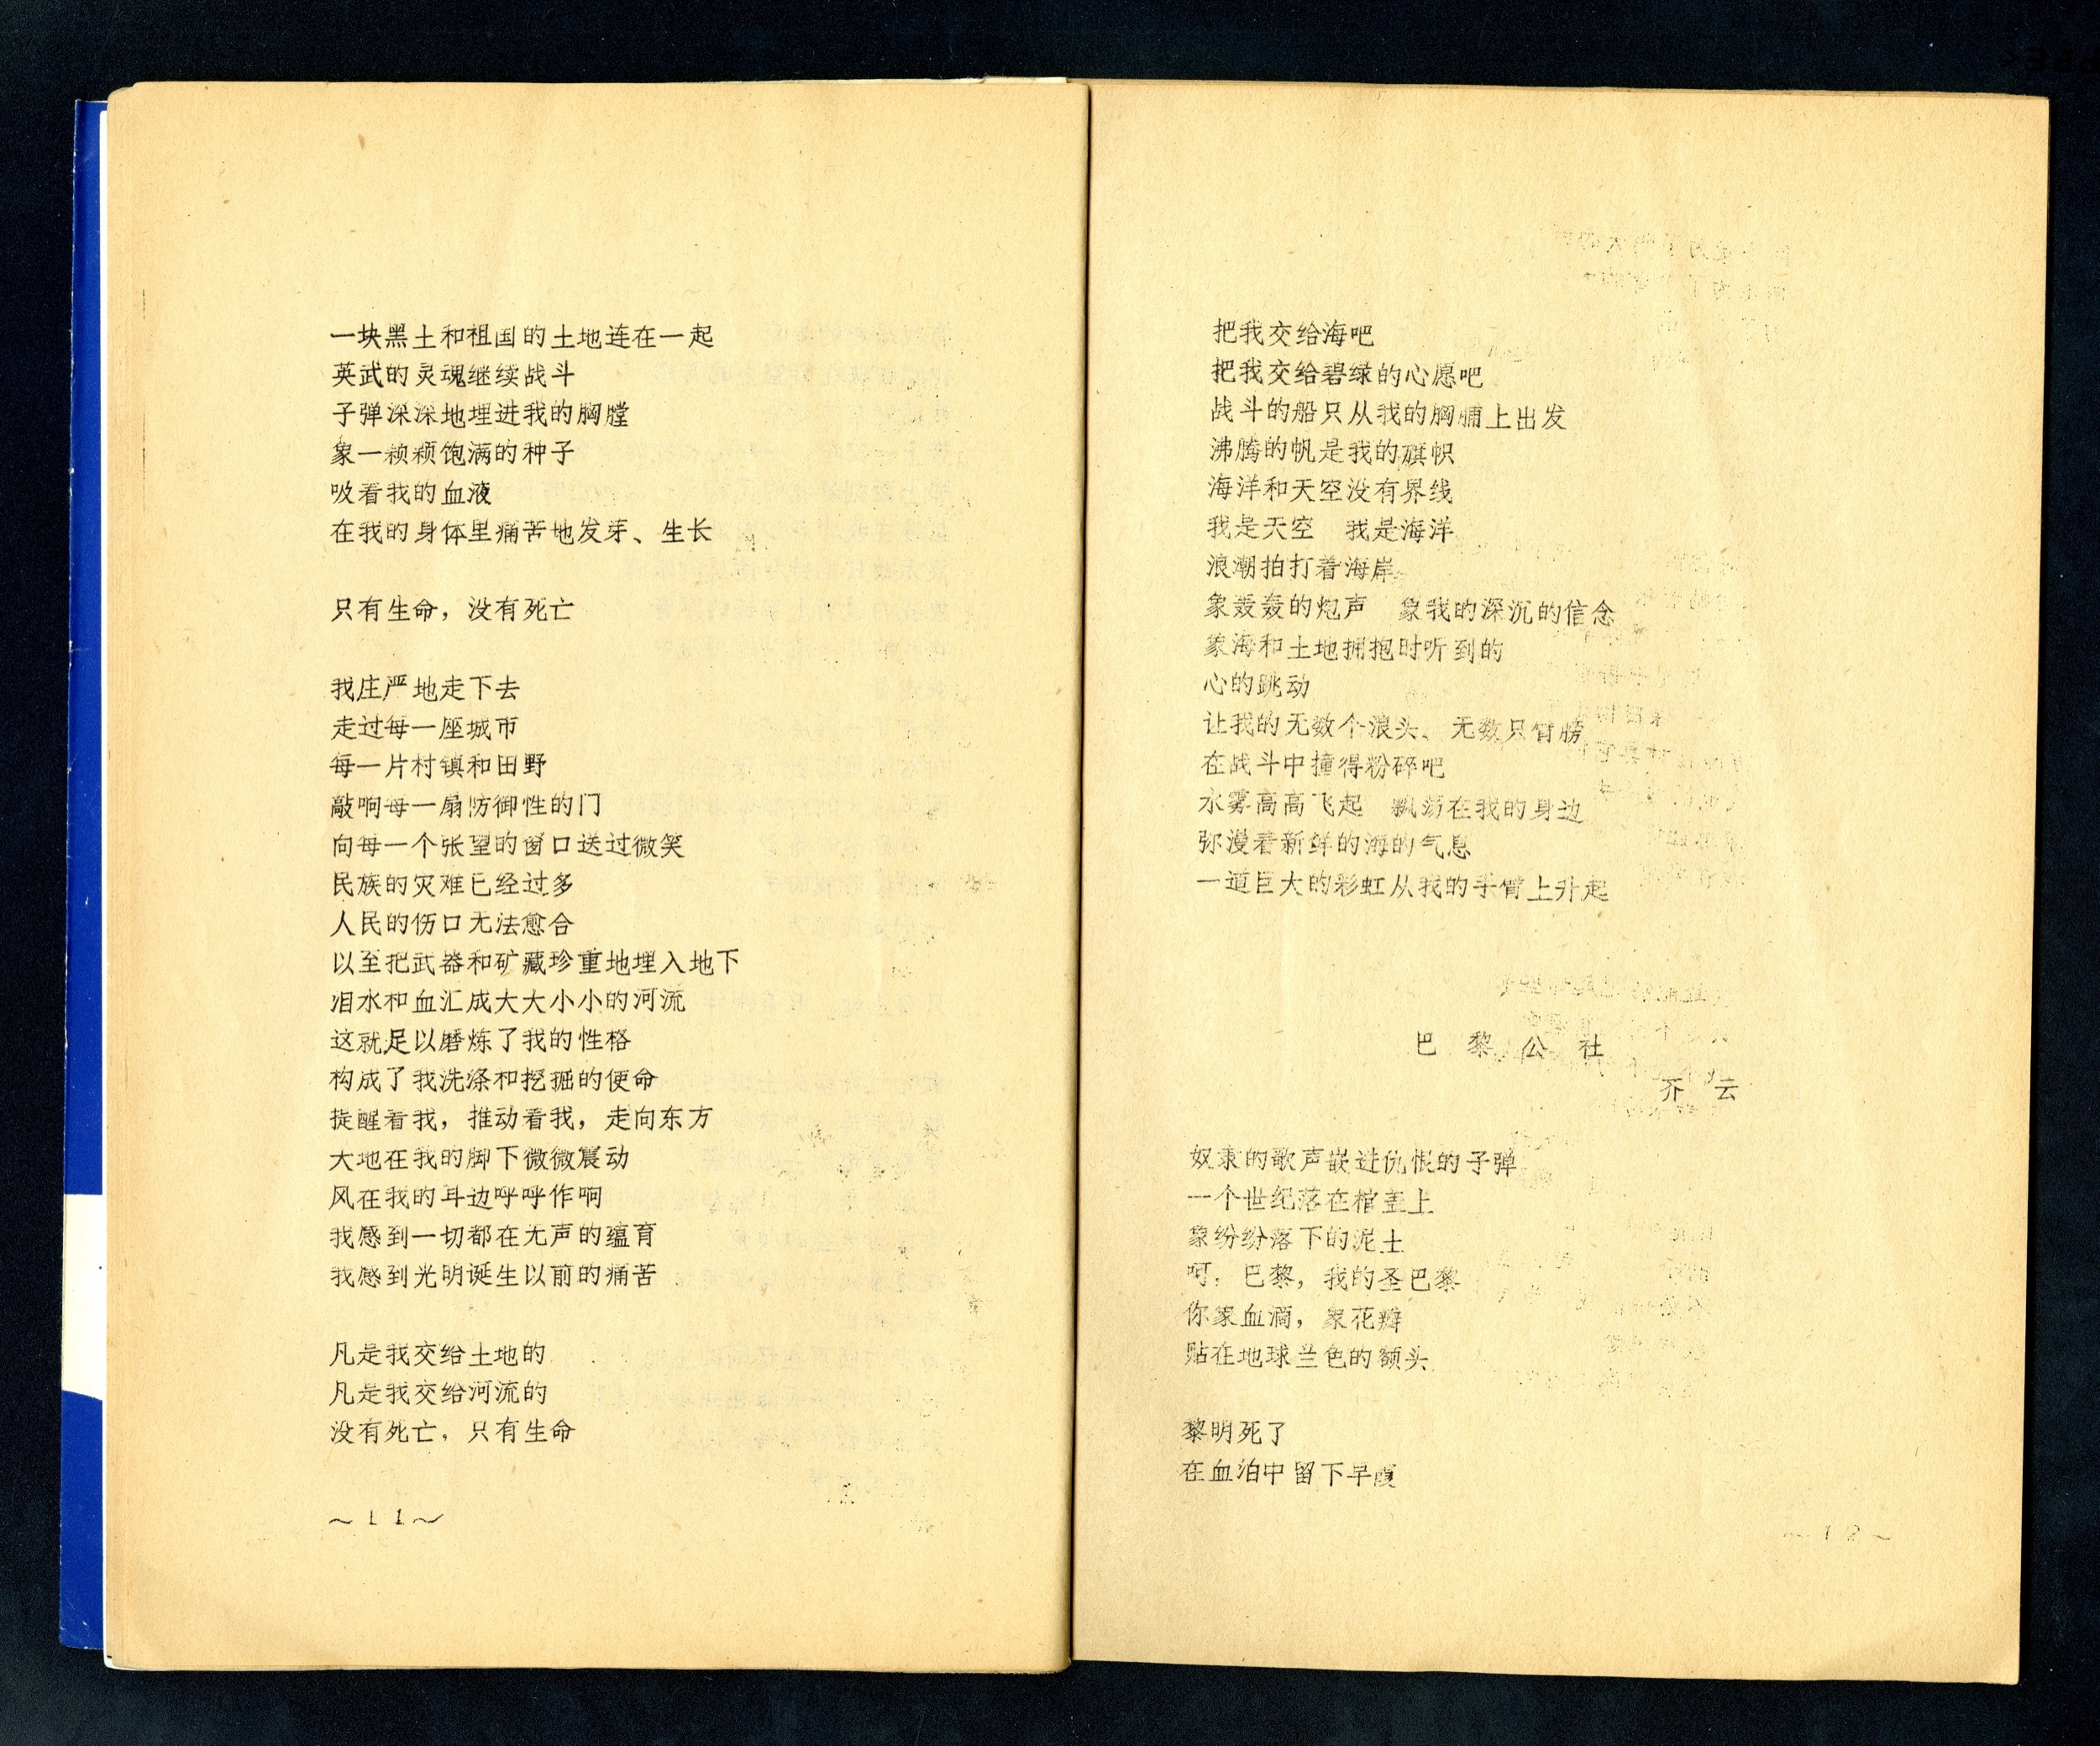 一块黑土和祖国的土地连在一起
英武的灵魂继续战斗
子弹深深地埋进我的胸膛
象一颗颗饱满的种子
吸看我的血液
在我的身体里痛苦地发芽、生长
只有生命，没有死亡
我庄严地走下去
走过每一座城市
每一片村镇和田野
敲响每一扇防御性的门
向每一个张望的窗口送过微笑
民族的灾难已经过多
人民的伤口无法愈合
以至把武器和矿藏珍重地埋入地下
泪水和血汇成大大小小的河流
这就足以磨炼了我的性格
构成了我洗涤和挖掘的使命
提醒看我，推动看我，走向东方
大地在我的脚下微微震动
风在我的耳边呼呼作响
我感到一切都在无声的蕴育
我感到光明诞生以前的痛苦
凡是我交给土地的
凡是我交给河流的
没有死亡，只有生命
～11～
把我交给海吧
把我交给碧绿的心愿吧
战斗的船只从我的胸脯上出发
沸腾的帆是我的旗帜
海洋和天空没有界线
我是天空　我是海洋
浪潮拍打着海岸
象轰轰的炮声　象我的深沉的信念
象海和土地拥抱时听到的
心的跳动
让我的无数个浪头、无数只臂膀
在战斗中撞得粉碎吧
水雾高高飞起　飘荡在我的身边
弥漫着新鲜的海的气息
一道巨大的彩虹从我的手臂上升起
巴黎公社
芥云
奴隶的歌声嵌进仇恨的子弹
一个世纪落在棺盖上
象纷纷落下的泥土
呵，巴黎，我的圣巴黎
你象血滴，象花瓣
贴在地球兰色的额头
黎明死了
在血泊中留下早霞
～12～